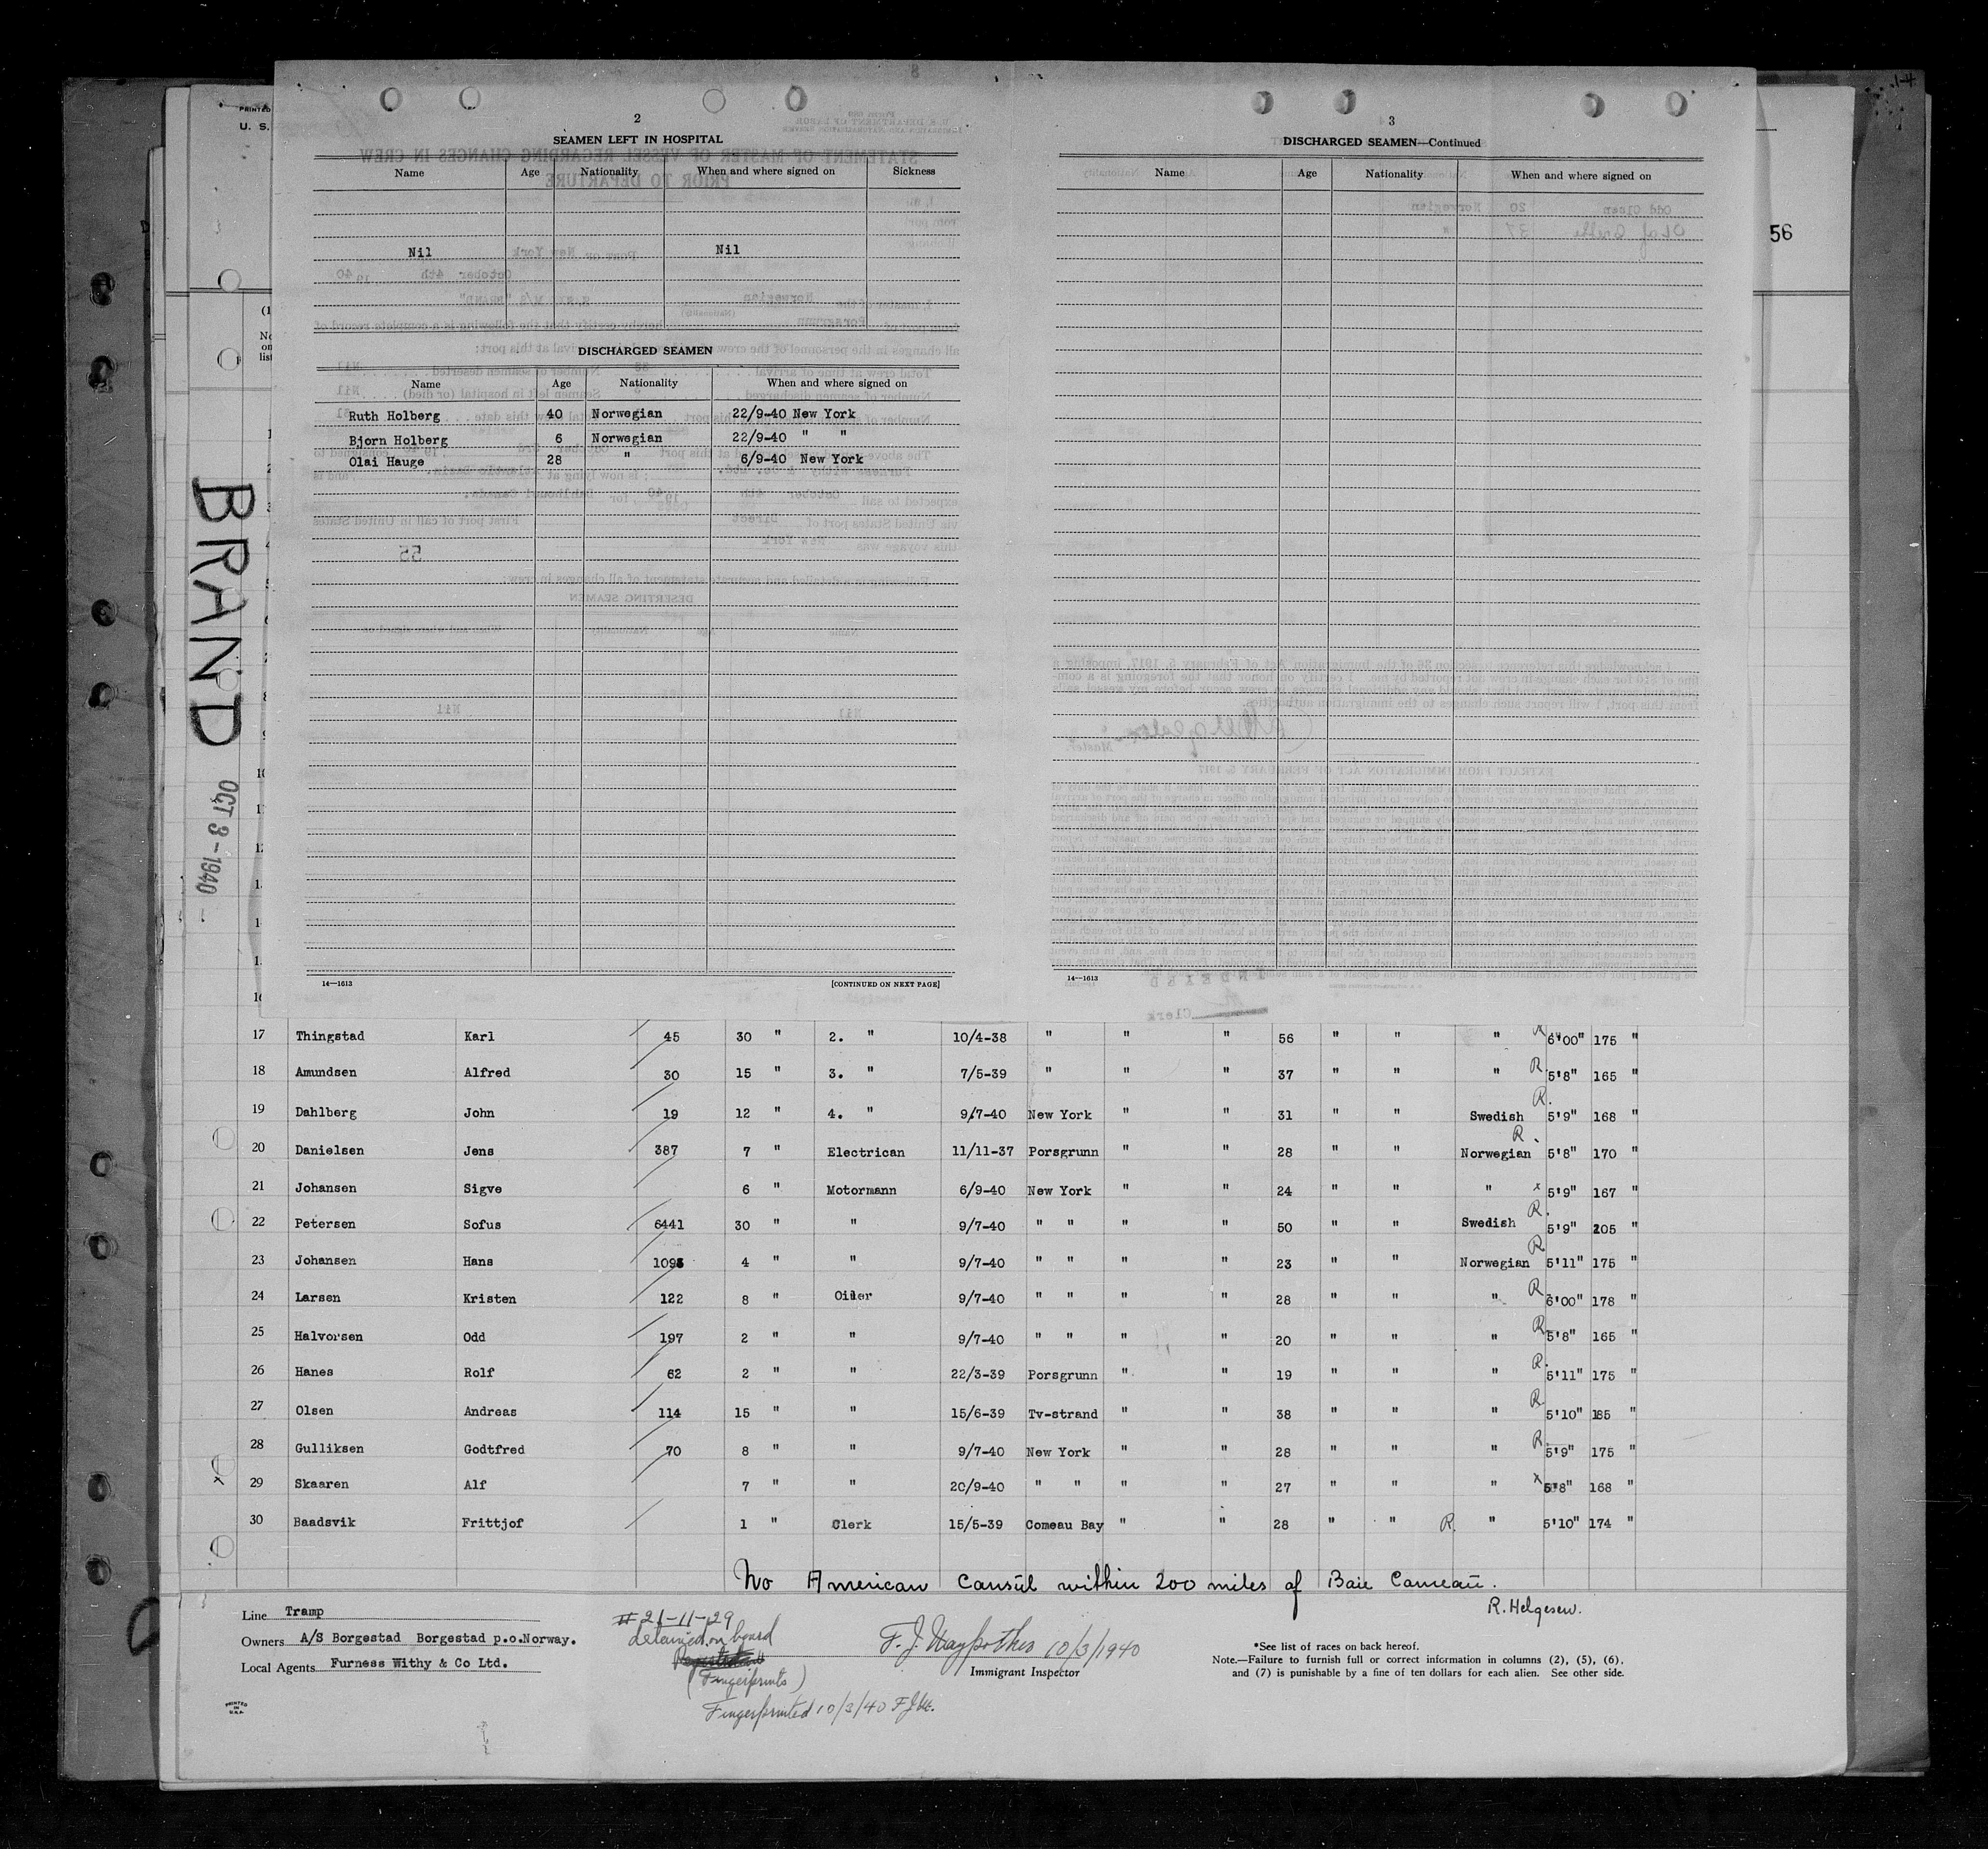 14
PRINTED
U. S.
56
2
SEAMEN LEFT IN HOSPITAL
Name Age Nationality When and where signed on Sickness
Nil Nil
DISCHARGED SEAMEN
Name Age Nationality When and where signed on
Ruth Holberg 40 Norwegian 22/9-40 New York
Bjorn Holberg 6 Norwegian 22/9-40 " "
Olai Hauge 28 " 6/9-40 New York
55
14—1613 [CONTINUED ON NEXT PAGE]
3
DISCHARGED SEAMEN—Continued
Name Age Nationality When and where signed on
14—1613
BRAND
OCT 3-1940
17 Thingstad Karl 45 30 " 2. " 10/4-38 " " " 56 " " " R 6'00" 175 "
18 Amundsen Alfred 30 15 " 3. " 7/5-39 " " " 37 " " " R 5'8" 165 "
19 Dahlberg John 19 12 " 4. " 9/7-40 New York " " 31 " " Swedish R. 5'9" 168 "
20 Danielsen Jens 387 7 " Electrican 11/11-37 Porsgrunn " " 28 " " Norwegian R 5'8" 170 "
21 Johansen Sigve 6 " Motormann 6/9-40 New York " " 24 " " " x 5'9" 167 "
22 Petersen Sofus 6441 30 " " 9/7-40 " " " " 50 " " Swedish R. 5'9" 205 "
23 Johansen Hans 4 " " 9/7-40 " " " " 23 " " Norwegian R 5'11" 175 "
24 Larsen Kristen 122 8 " Oiler 9/7-40 " " " " 28 " " " R 6'00" 178 "
25 Halvorsen Odd 197 2 " " 9/7-40 " " " " 20 " " " R 5'8" 165 "
26 Hanes Rolf 62 2 " " 22/3-39 Porsgrunn " " 19 " " " R. 5'11" 175 "
27 Olsen Andreas 114 15 " " 15/6-39 Tv-strand " " 38 " " " R 5'10" 185 "
28 Gulliksen Godtfred 70 8 " " 9/7-40 New York " " 28 " " " R 5'9" 175 "
x 29 Skaaren Alf 7 " " 20/9-40 " " " " 27 " " " x 5'8" 168 "
30 Baadsvik Frittjof 1 " Clerk 15/5-39 Comeau Bay " " 28 " " R. " 5'10" 174 "
No American Consul within 200 miles of Baie Comeau.
R. Helgesen.
Line Tramp
Owners A/S Borgestad Borgestad p.o.Norway.
Local Agents Furness Withy & Co Ltd.
# 21-11-29
detained on board
(Fingerprints)
Fingerprinted 10/3/40
10/3/1940
Immigrant Inspector
*See list of races on back hereof.
Note.—Failure to furnish full or correct information in columns (2), (5), (6),
and (7) is punishable by a fine of ten dollars for each alien. See other side.
PRINTED
IN
U.S.A.